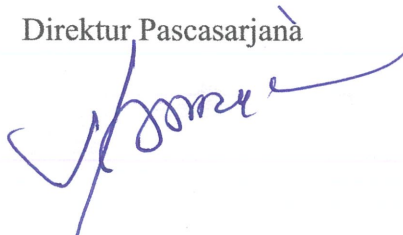 Direktur Pascasarjana